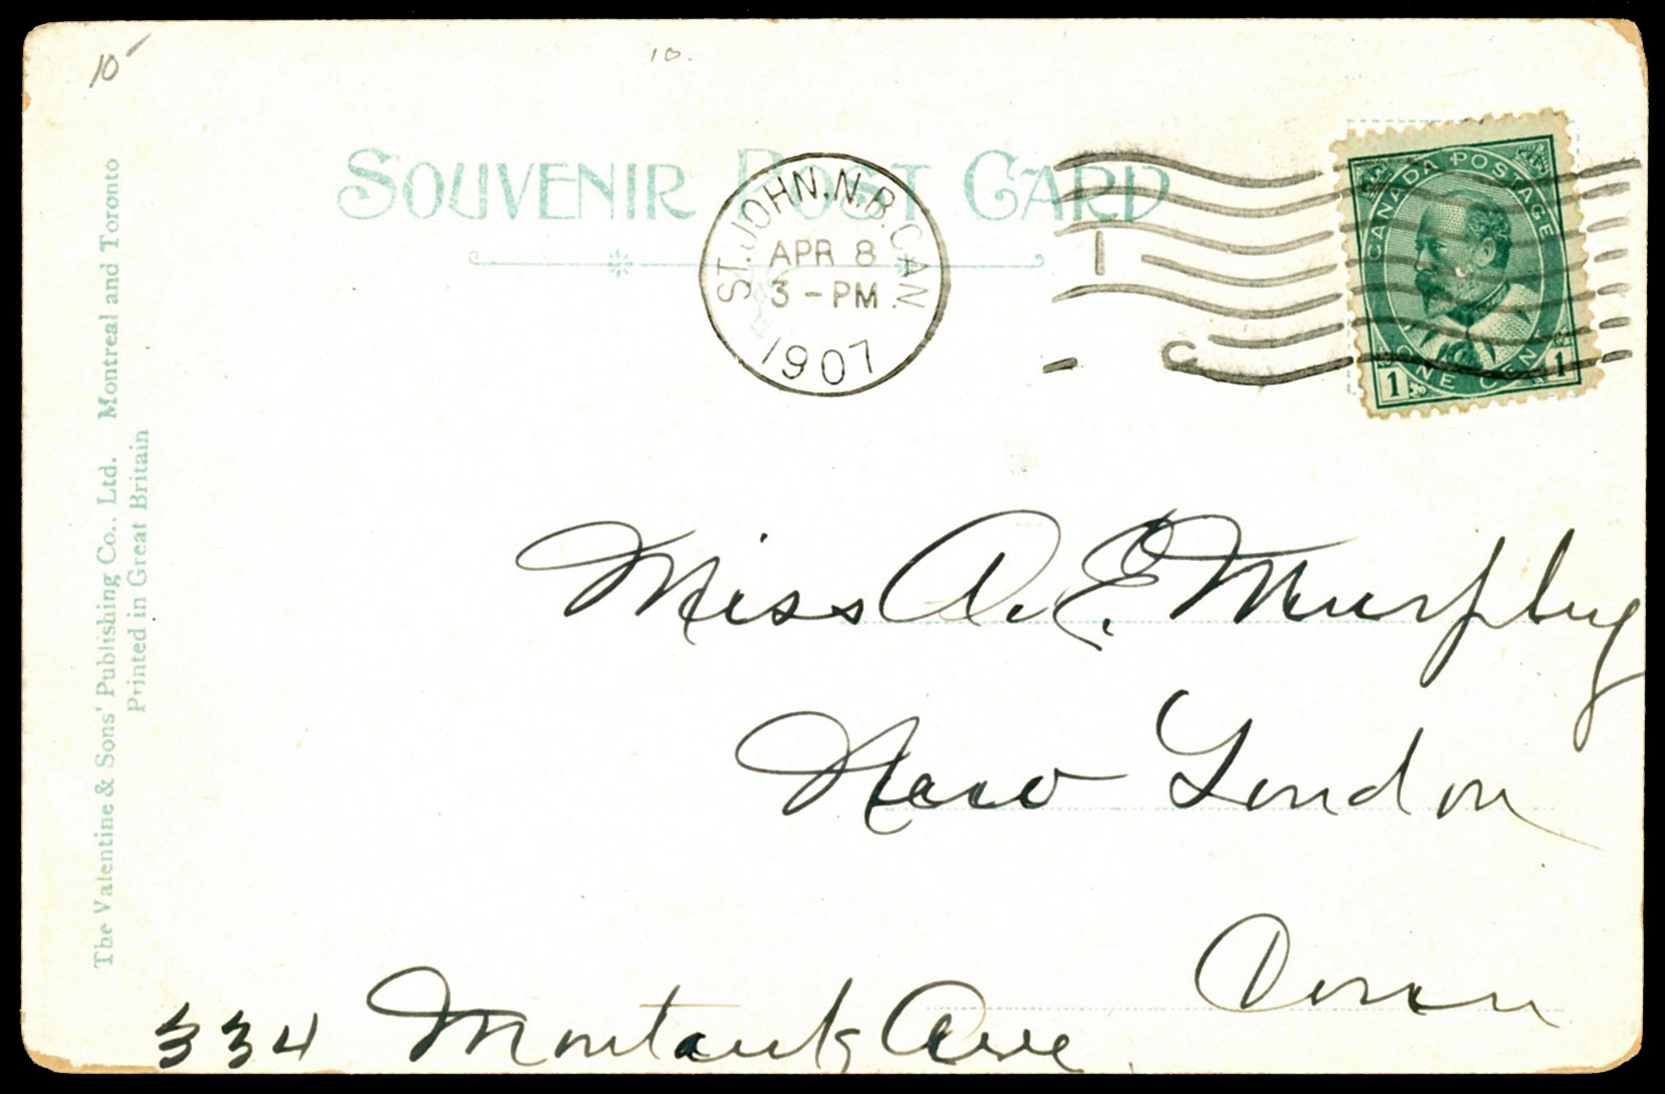 10
10.
SOUVENIR POST CARD
ST. JOHN, N.B. CAN.
APR 8
3 - PM
1907
1
C
CANADA POSTAGE
ONE CENT
1 1
The Valentine & Sons' Publishing Co., Ltd. Montreal and Toronto
Printed in Great Britain
Miss A. E. Murphy
New London
Conn
334 Montauk Ave.